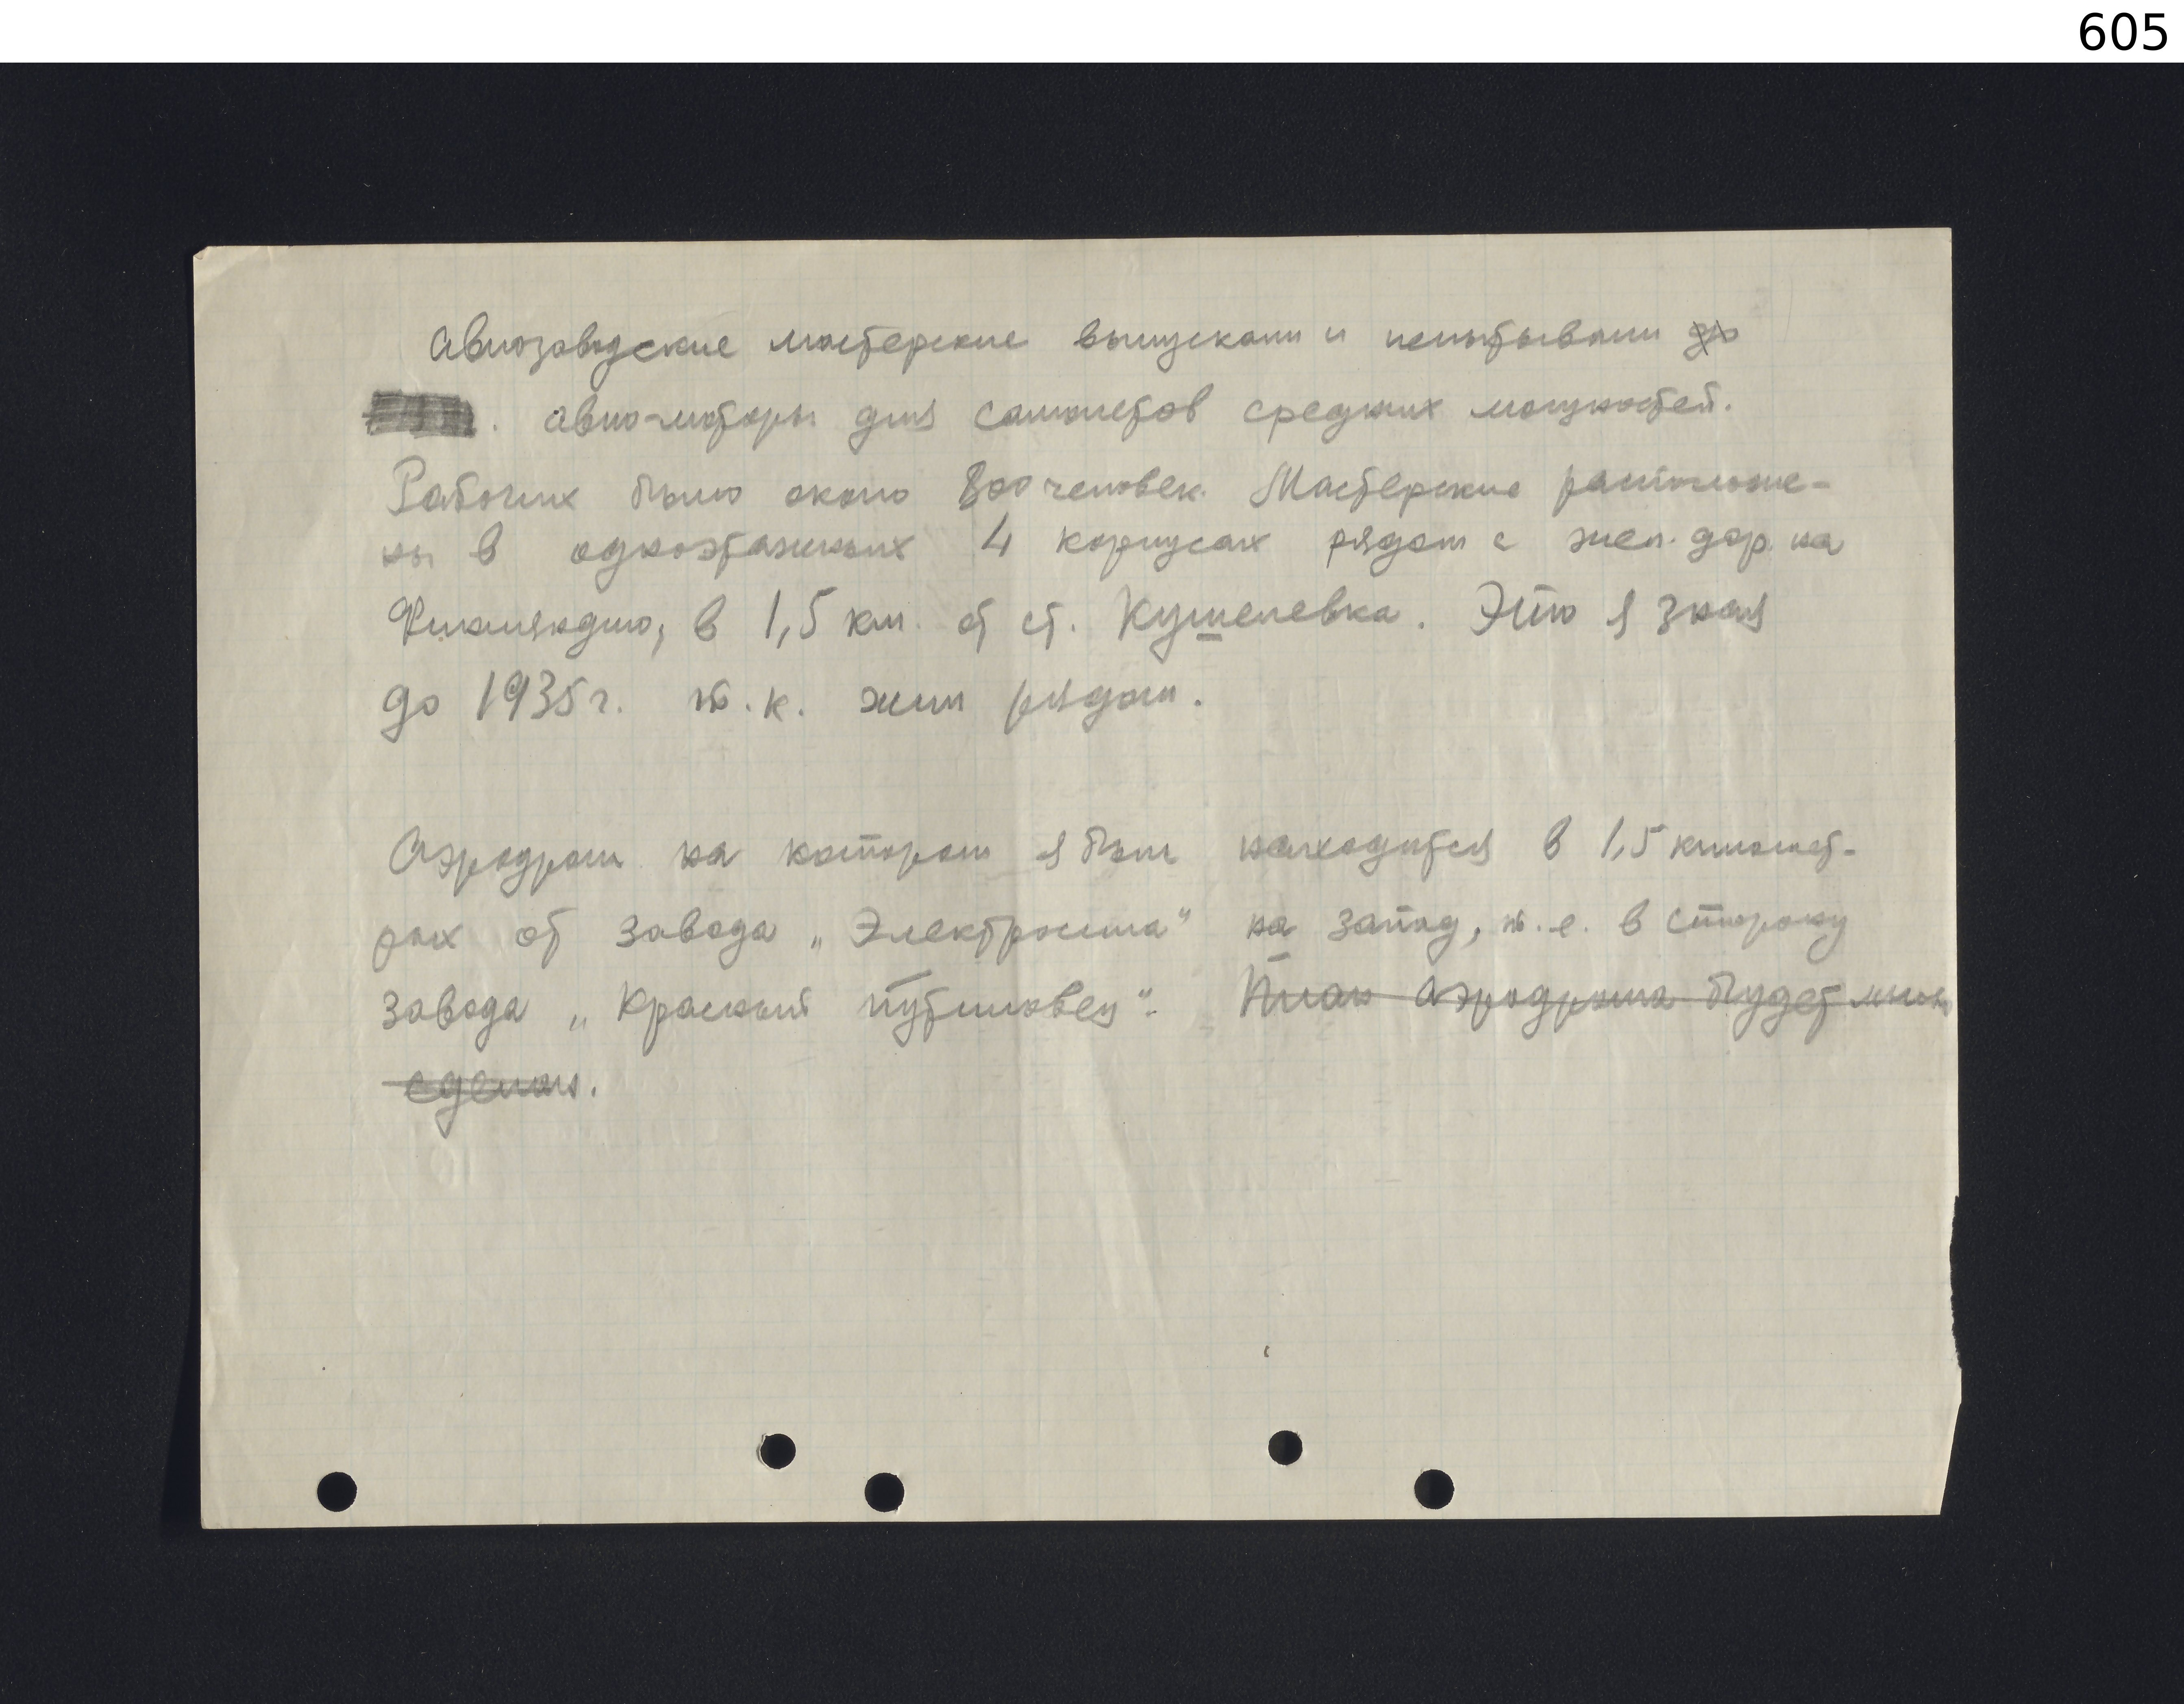 605
Авиозаводские мастерские выпускали и испытывали до
. авио-моторы для самолетов средних мощностей.
Рабочих было около 800 человек. Мастерские расположе-
ны в одноэтажных 4 корпусах рядом с жел. дор. на
Финляндию, в 1,5 км. от ст. Кушелевка. Это я знал
до 1935 г. т.к. жил рядом.
Аэродром на котором я был находится в 1,5 километ-
рах от завода „Электросила" на запад, т.е. в сторону
завода „Красный путиловец". План аэродрома будет мною
сделан.